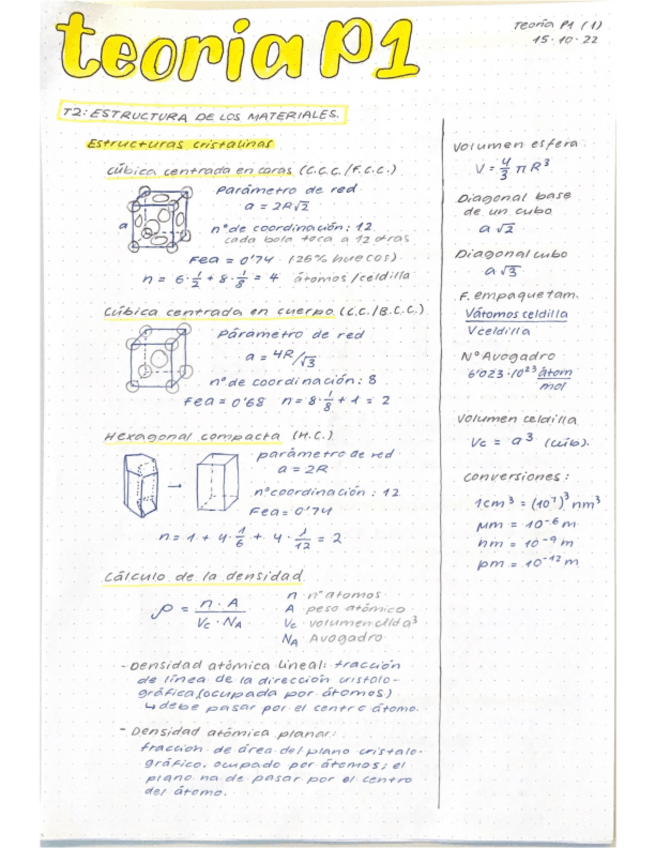 teoría P1
Teoría P1 (1)
15·10·22
T2: ESTRUCTURA DE LOS MATERIALES.
Estructuras cristalinas
Cúbica centrada en caras (C.C.C./F.C.C.)
Parámetro de red
a = 2R√2
a
nº de coordinación: 12
cada bola toca a 12 otras
Fea = 0'74 (26% huecos)
n = 6·1/2 + 8·1/8 = 4 átomos/celdilla
Cúbica centrada en cuerpo (C.C./B.C.C.)
Párámetro de red
a = 4R/√3
nº de coordinación: 8
Fea = 0'68 n = 8·1/8 + 1 = 2
Hexagonal compacta (H.C.)
parámetro de red
a = 2R
nº coordinación: 12
Fea = 0'74
→
n = 1 + 4·1/6 + 4·1/12 = 2
Cálculo de la densidad
ρ = n·A / Vc·NA
n nº átomos
A peso atómico
Vc volumen celd a³
NA Avogadro
- Densidad atómica lineal: fracción
de línea de la dirección cristalo-
gráfica (ocupada por átomos)
↳ debe pasar por el centro átomo.
- Densidad atómica planar:
fracción de área del plano cristalo-
gráfico, ocupado por átomos; el
plano ha de pasar por el centro
del átomo.
Volumen esfera
V = 4/3 π R³
Diagonal base
de un cubo
a√2
Diagonal cubo
a√3
F. empaquetam.
Vátomos celdilla
Vceldilla
Nº Avogadro
6'023·10²³ átom/mol
Volumen celdilla
Vc = a³ (cubo).
Conversiones:
1cm³ = (10⁷)³ nm³
μm = 10⁻⁶ m
nm = 10⁻⁹ m
pm = 10⁻¹² m